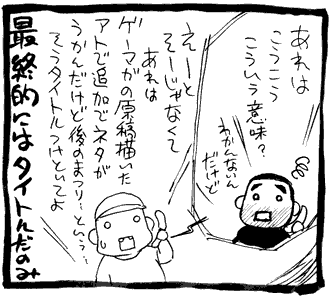 あれは
こうこう
こういう意味?
わかんないん
だけど
えーと
そーじゃなくて
あれは
ゲーマガの原稿描いた
アトで追加でネタが
うかんだけど後のまつり…という…
そうタイトルつけといてよ
最終的にはタイトルだのみ